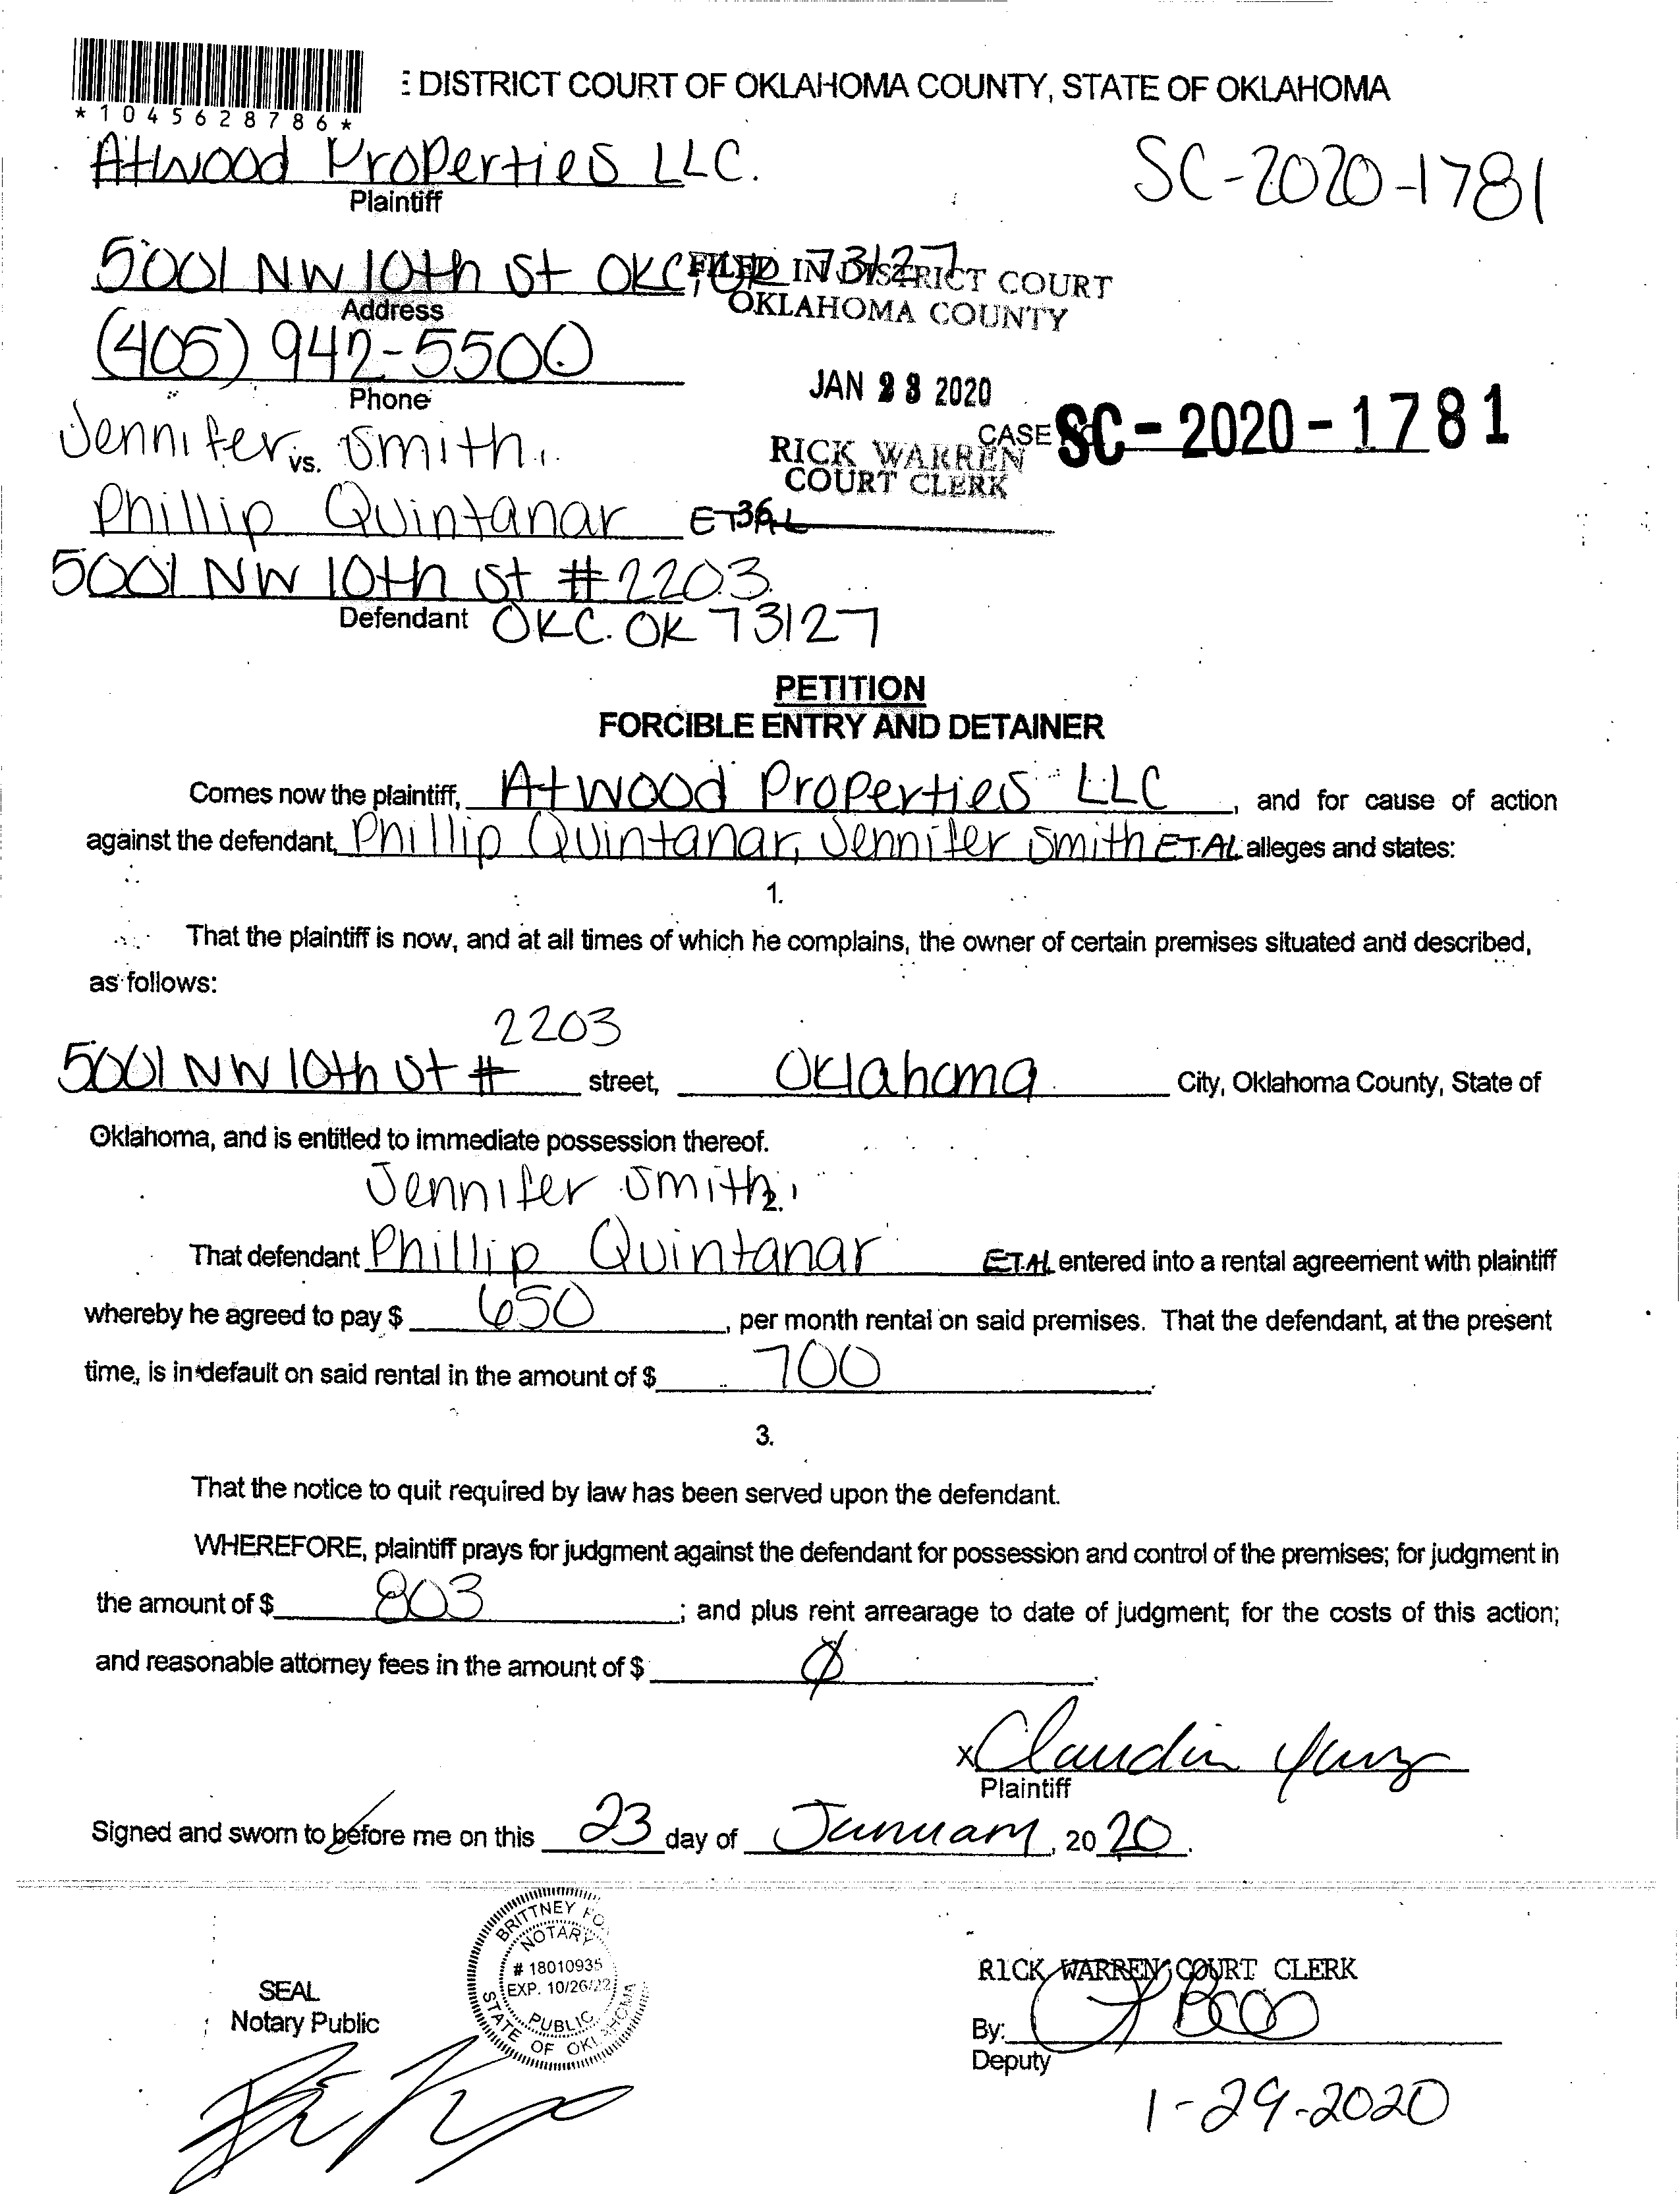 : DISTRICT COURT OF OKLAHOMA COUNTY, STATE OF OKLAHOMA
*1045628786*
Atwood Properties LLC.
SC-2020-1781
Plaintiff
5001 NW 10th St OKC, OK 73127
FILED IN DISTRICT COURT
OKLAHOMA COUNTY
Address
(405) 942-5500
Phone
JAN 23 2020
CASE SC-2020-1781
RICK WARREN
COURT CLERK
Jennifer Smith,
vs.
Phillip Quintanar ET AL
36
5001 NW 10th St #2203
Defendant OKC. OK 73127
PETITION
FORCIBLE ENTRY AND DETAINER
Comes now the plaintiff, Atwood Properties LLC, and for cause of action
against the defendant, Phillip Quintanar, Jennifer Smith ET.AL alleges and states:
1.
That the plaintiff is now, and at all times of which he complains, the owner of certain premises situated and described,
as follows:
2203
5001 NW 10th St # street, Oklahoma City, Oklahoma County, State of
Oklahoma, and is entitled to immediate possession thereof.
Jennifer Smith,
2.
That defendant Phillip Quintanar ET.AL entered into a rental agreement with plaintiff
whereby he agreed to pay $ 650, per month rental on said premises. That the defendant, at the present
time, is in default on said rental in the amount of $ 700.
3.
That the notice to quit required by law has been served upon the defendant.
WHEREFORE, plaintiff prays for judgment against the defendant for possession and control of the premises; for judgment in
the amount of $ 803; and plus rent arrearage to date of judgment; for the costs of this action;
and reasonable attorney fees in the amount of $ Ø.
x Claudia
Plaintiff
Signed and sworn to before me on this 23 day of January, 2020.
BRITTNEY FO
NOTARY
# 18010935
EXP. 10/26/22
PUBLIC
STATE OF OKLAHOMA
SEAL
Notary Public
RICK WARREN, COURT CLERK
By:
Deputy
1-29-2020